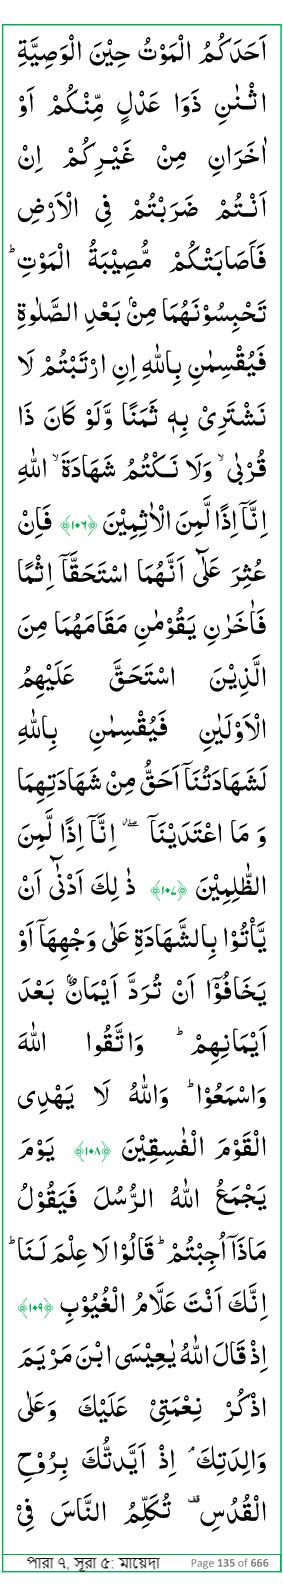 اَحَدَكُمُ الْمَوْتُ حِيْنَ الْوَصِيَّةِ
اثْـنٰنِ ذَوَا عَدْلٍ مِّنْكُمْ اَوْ
اٰخَرَانِ مِنْ غَيْرِكُمْ اِنْ
اَنْـتُمْ ضَرَبْتُمْ فِى الْاَرْضِ
فَاَصَابَتْكُمْ مُّصِيْبَةُ الْمَوْتِ ؕ
تَحْبِسُوْنَهُمَا مِنْۢ بَعْدِ الصَّلٰوةِ
فَيُقْسِمٰنِ بِاللّٰهِ اِنِ ارْتَبْتُمْ لَا
نَشْتَرِىْ بِهٖ ثَمَنًا وَّلَوْ كَانَ ذَا
قُرْبٰى ۙ وَلَا نَـكْتُمُ شَهَادَةَ ۙ اللّٰهِ
اِنَّاۤ اِذًا لَّمِنَ الْاٰثِمِيْنَ ﴿۱۰۶﴾ فَاِنْ
عُثِرَ عَلٰٓى اَنَّهُمَا اسْتَحَقَّاۤ اِثْمًا
فَاٰخَرٰنِ يَقُوْمٰنِ مَقَامَهُمَا مِنَ
الَّذِيْنَ اسْتَحَقَّ عَلَيْهِمُ
الْاَوْلَيٰنِ فَيُقْسِمٰنِ بِاللّٰهِ
لَشَهَادَتُنَاۤ اَحَقُّ مِنْ شَهَادَتِهِمَا
وَ مَا اعْتَدَيْنَاۤ ۖ اِنَّاۤ اِذًا لَّمِنَ
الظّٰلِمِيْنَ ﴿۱۰۷﴾ ذٰ لِكَ اَدْنٰٓى اَنْ
يَّاْتُوْا بِالشَّهَادَةِ عَلٰى وَجْهِهَاۤ اَوْ
يَخَافُوْۤا اَنْ تُرَدَّ اَيْمَانٌۢ بَعْدَ
اَيْمَانِهِمْ ؕ وَاتَّقُوا اللّٰهَ
وَاسْمَعُوْا ؕ وَاللّٰهُ لَا يَهْدِى
الْقَوْمَ الْفٰسِقِيْنَ ﴿۱۰۸﴾ يَوْمَ
يَجْمَعُ اللّٰهُ الرُّسُلَ فَيَقُوْلُ
مَاذَاۤ اُجِبْتُمْ ؕ قَالُوْا لَا عِلْمَ لَـنَا ؕ
اِنَّكَ اَنْتَ عَلَّامُ الْغُيُوْبِ ﴿۱۰۹﴾
اِذْ قَالَ اللّٰهُ يٰعِيْسَى ابْنَ مَرْيَمَ
اذْكُرْ نِعْمَتِىْ عَلَيْكَ وَعَلٰى
وَالِدَتِكَ ۘ اِذْ اَيَّدتُّكَ بِرُوْحِ
الْقُدُسِ ۗ تُكَلِّمُ النَّاسَ فِىْ
পারা ৭, সূরা ৫: মায়েদা Page 135 of 666